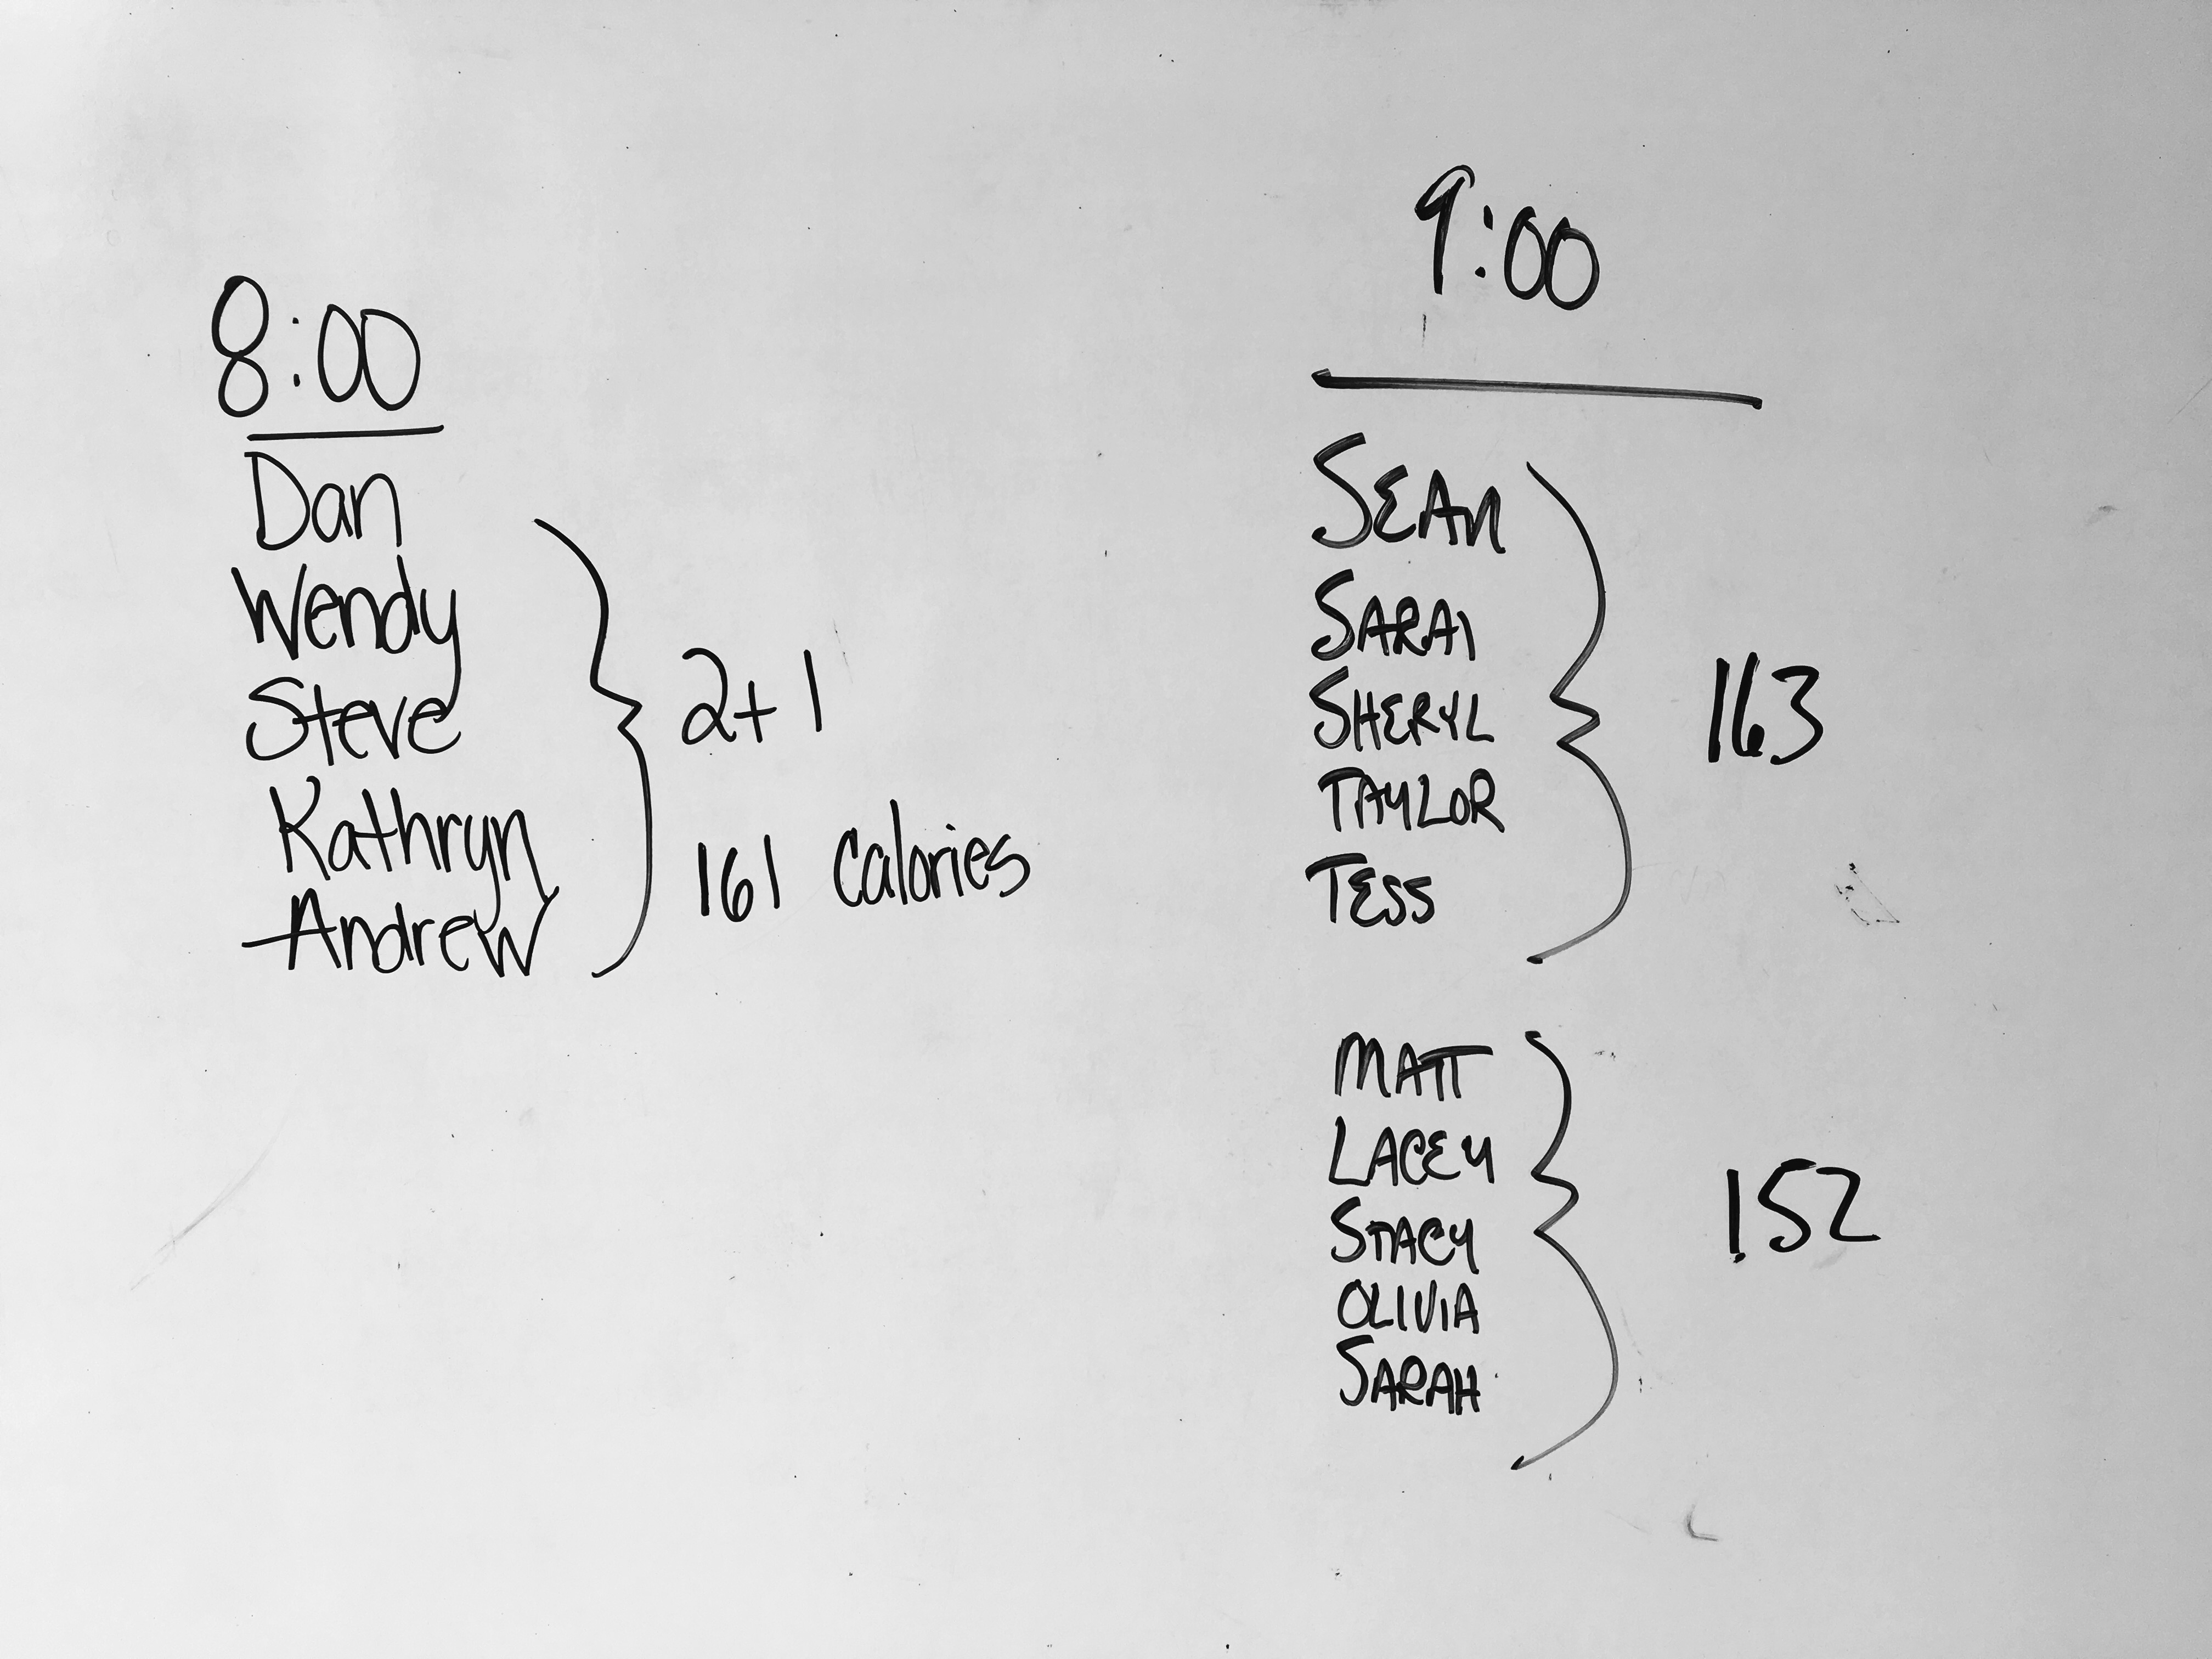 8:00
Dan
Wendy
Steve
Kathryn
Andrew
2+1
161 Calories
9:00
SEAN
SARAI
SHERYL
TAYLOR
TESS
163
MATT
LACEY
STACY
OLIVIA
SARAH
152